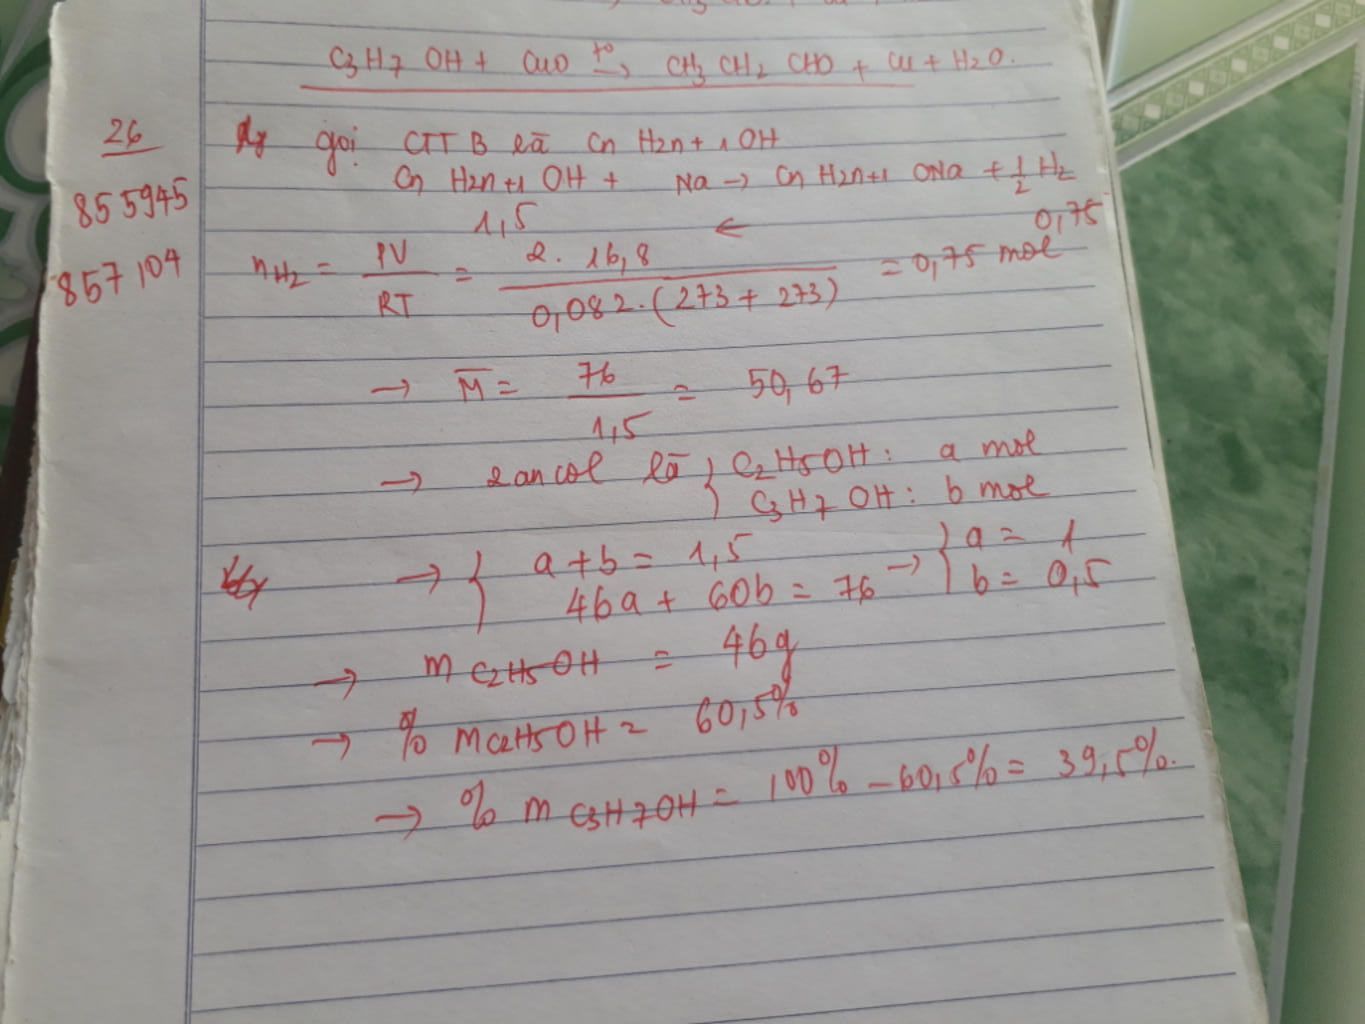 C3H7 OH + CuO t° → CH3 CH2 CHO + Cu + H2O.
26
gọi CTTB là Cn H2n+1OH
Cn H2n+1 OH + Na → Cn H2n+1 ONa + 1/2 H2
855945
1,5 ← 0,75
857104
nH2 = PV/RT = 2. 16,8 / 0,082.(273 + 273) = 0,75 mol
→ M̅ = 76/1,5 = 50,67
→ 2 ancol là } C2H5OH: a mol
C3H7 OH: b mol
→ { a + b = 1,5 → } a = 1
46a + 60b = 76 b = 0,5
→ m C2H5OH = 46g
→ % mC2H5OH = 60,5%
→ % m C3H7OH = 100% - 60,5% = 39,5%.